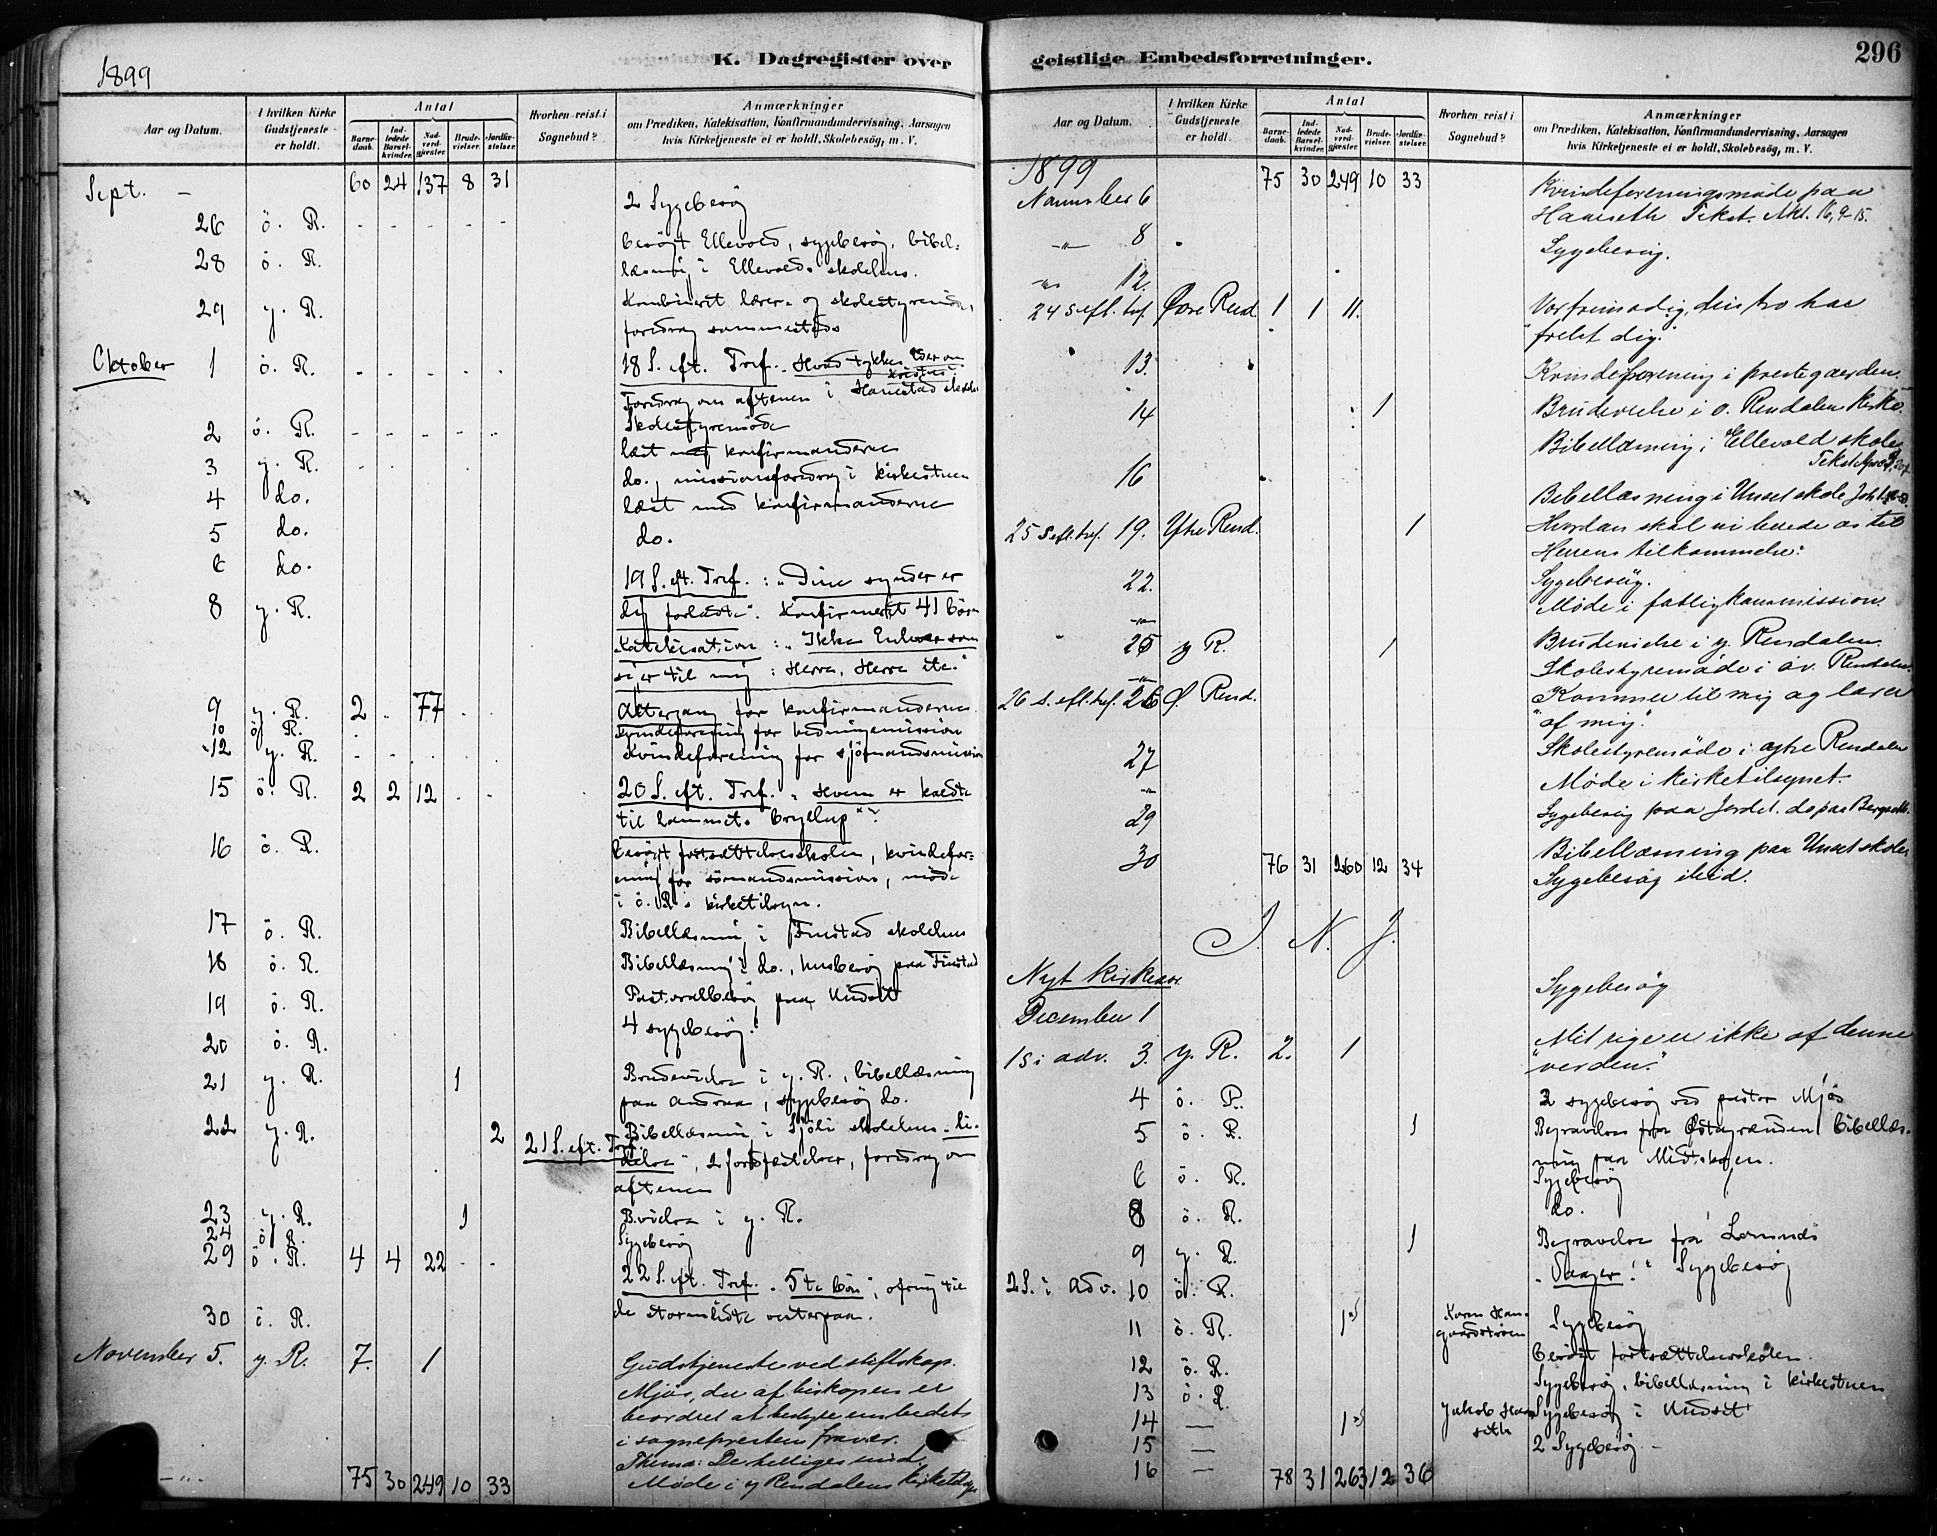 1899
K. Dagregister over
Aar og Datum.
I hvilken Kirke Gudstjeneste er holdt.
Antal
Barnedaab.
Indledede Barselkvinder.
Nadverdgjester.
Brudevielser.
Jordfæstelser.
Hvorhen reist i Sognebud?
Anmærkninger
om Prædiken, Katekisation, Konfirmandundervisning, Aarsagen
hvis Kirketjeneste ei er holdt, Skolebesög, m. V.
Sept. — 60 24 137 8 31
2 Sygebesög
26 ö. R. besögt Ellevold, sygebesög, bibel=
28 ö. R. læsning i Ellevolds skolehus.
29 y. R. Kombineret lærer- og skolestyremöde,
foredrag sammesteds
Oktober 1 ö. R. 18 S. eft. Tref. Hvad tykkes Eder om Kristus?
Foredrag om aftenen i Hanestad skole
2 ö. R. Skolestyremöde
3 y. R. læst med konfirmanderne
4 do. do., missionsforedrag i kirkestuen
5 do. læst med konfirmanderne
6 do. do.
8 y. R. 19 S. eft. Tref.: "Dine synder er
dig forladte". Konfirmeret 41 börn
Katekisation: "Ikke Enhver som
siger til mig: Herre, Herre etc."
9 y. R. 2 77 Altergang for konfirmanderne
10 ö. R. Kvindeforening for hedningemission
12 y. R. Kvindeforening for sjömandsmission
15 ö. R. 2 2 12 20 S. eft. Tref. "Hvem er kaldte
til Lammets bryllup"?
16 ö. R. besögt fortsættelsesskolen, kvindefor=
ening for sömandsmission, möde
i ö. R.s kirketilsyn.
17 ö. R. Bibellæsning i Finstad skolehus
18 ö. R. Bibellæsning i do., husbesög paa Finstad
19 ö. R. Pastoralbesög paa Undset
20 ö. R. 4 sygebesög.
21 y. R. 1 Brudevielse i y. R., bibellæsning
paa Andraa, sygebesög do.
22 y. R. 2 Bibellæsning i Sjöli skolehus
21 S. eft. Tref. 2 jordfæstelser, foredrag om
aftenen
23 y. R. 1 B.vielse i y. R.
24 ö. R. Sygebesög
29 ö. R. 4 4 22 22 S. eft. Tref. "5te bön", ofring til
30 ö. R. de stormlidte vesterpaa.
November 5. y. R. 7. 1 Gudstjeneste ved stiftskap.
Mjös, der af biskopen er
beordret at bestyre embedet
i sognepresten fravær.
Thema: De helliges
Möde i y Rendalens kirketilsyn
75 30 249 10 33
geistlige Embedsforretninger.
296
Aar og Datum.
I hvilken Kirke Gudstjeneste er holdt.
Antal
Barnedaab.
Indledede Barselkvinder.
Nadverdgjester.
Brudevielser.
Jordfæstelser.
Hvorhen reist i Sognebud?
Anmærkninger
om Prædiken, Katekisation, Konfirmandundervisning, Aarsagen
hvis Kirketjeneste ei er holdt, Skolebesög, m. V.
1899 75 30 249 10 33
November 6 Kvindeforeningsmøde paa
Haneseth Tekst. Akt. 16, 9-15.
" 8 Sygebesøg.
" 12.
24 S eft. tref. Øvre Rend 1 1 11. Vær frimodig, din tro har
"frelst dig."
13. Kvindeforening i prestegaarden.
14 1 Brudevielse i ø. Rendalen kirke.
Bibellæsning i Ellevold skole
16 Bibellæsning i Unset skole
25 S eft. tref. 19. Ytre Rend. 1 Hvordan skal vi berede os til
Herrens tilkommelse?
22. Sygebesøg.
Møde i fattigkommission.
25 y R. 1 Brudevielse i y. Rendalen.
Skolestyremøde i øv. Rendalen.
26 S. eft. tref. 26 Ø. Rend. Kommer til mig og lærer
"af mig."
27 Skolestyremøde i ytre Rendalen
Møde i kirketilsynet.
29 Sygebesøg paa Jordet. do paa Bergseth.
30 76 31 260 12 34 Bibellæsning paa Unset skole
Sygebesøg ibid.
I. N. J.
Nyt kirkeaar.
December 1 Sygebesøg
1 S i adv. 3. y. R. 2. 1 Mit rige er ikke af denne
"verden."
4 ö. R. 2 sygebesög ved pastor Mjös
5 ö. R. 1 Begravelse fra Østagrenden, bibellæs-
ning paa Midtskogen.
6 ö. R. Sygebesög
8 ö. R. do.
9 y. R. 1 Begravelse fra Lomnæs
2 S. i Adv. 10 ö. R. "Vaager!" Sygebesög
11 ö. R. 1 Sygebesög
12 ö. R. besögt fortsættelsesskolen.
13 ö. R. Sygebesög, bibellæsning i kirkestuen
14 — 1 Jakob Haneseth Sygebesög i Undset
15 — 2 Sygebesög
16 — 78 31 263 12 36